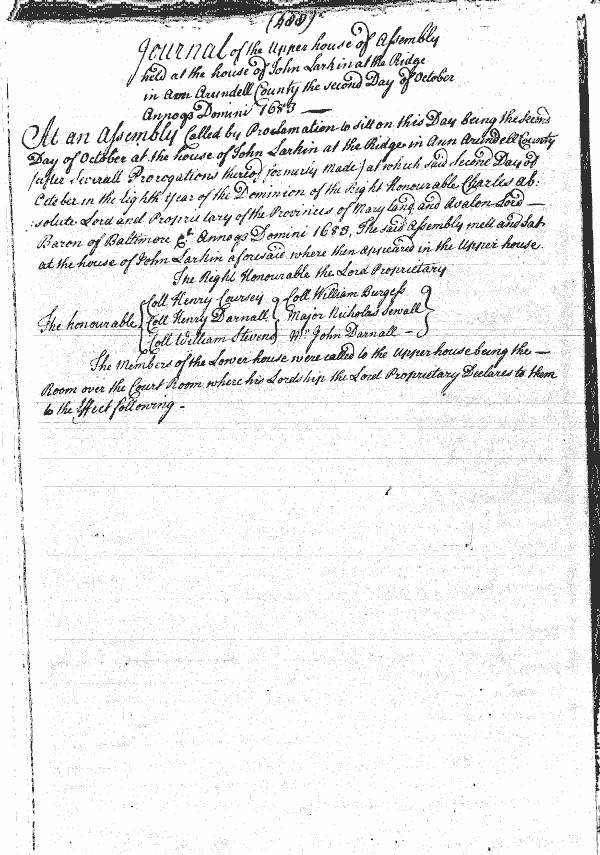 (488)
Journal of the Upper house of Assembly
held at the house of John Larkin at the Ridge
in Ann Arundell County the second Day of October
Annoqs Domini 1683 —
At an Assembly Called by Proclamation to sitt on this Day being the second
Day of October at the house of John Larkin at the Ridge in Ann Arundell County
(after severall Prorogations thereof formerly made) at which said second Day of
October in the Eighth year of the Dominion of the Right Honourable Charles Ab:
:solute Lord and Proprietary of the Provinces of Maryland and Avalon Lord —
Baron of Baltimore &c Annoqs Domini 1683, The said Assembly mett and sat
at the house of John Larkin aforesaid where then appeared in the Upper house
The Right Honourable the Lord Proprietary
Coll Henry Coursey Coll William Burgess
The honourable Coll Henry Darnall Major Nicholas Sewall
Coll William Stevens Mr John Darnall —
The Members of the Lower house were called to the upper house being the —
Room over the Court Room where his Lordship the Lord Proprietary Declares to them
to the Effect following -